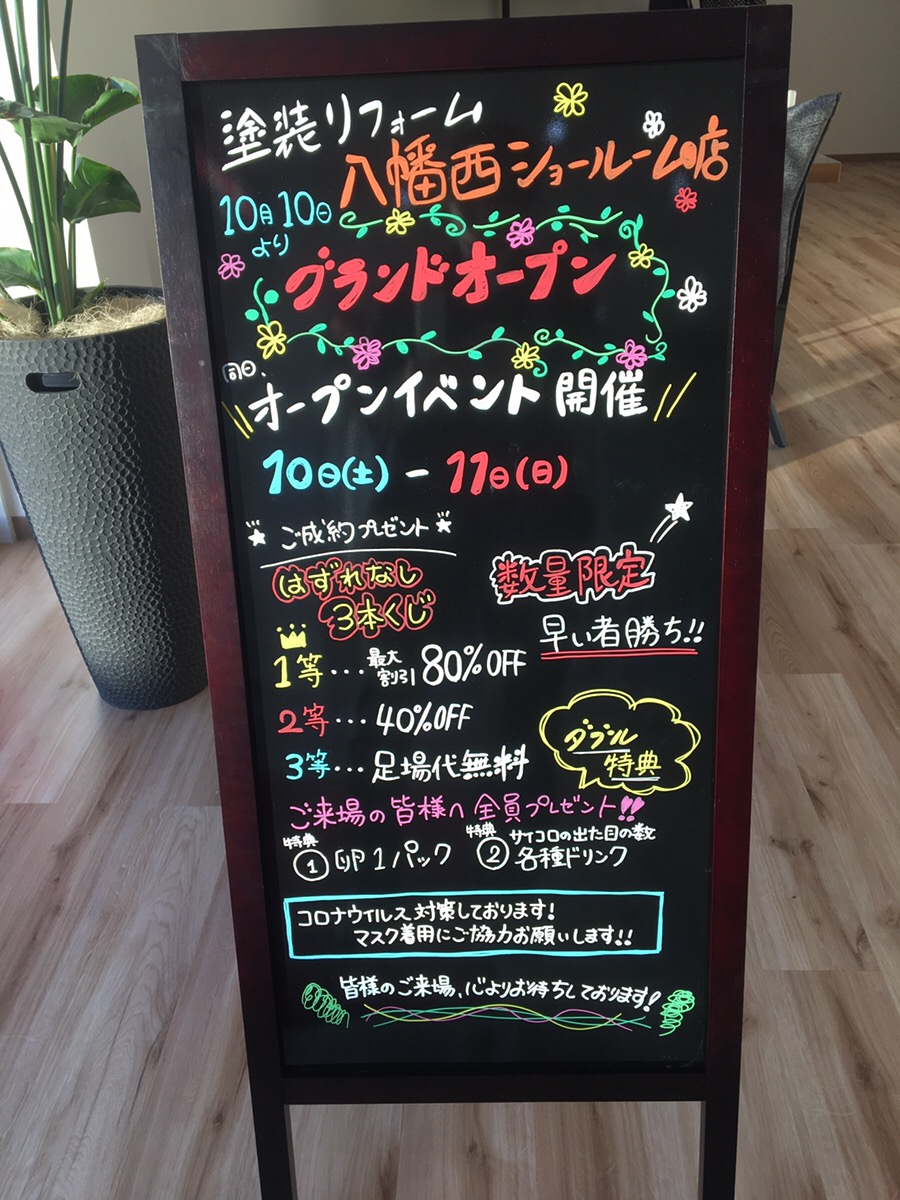 塗装リフォーム
八幡西ショールーム店
10月10日
より
グランドオープン
同日、
オープンイベント開催
10日(土) - 11日(日)
ご成約プレゼント
はずれなし
3本くじ
数量限定
早い者勝ち!!
1等…最大割引80%OFF
2等…40%OFF
3等…足場代無料
ダブル
特典
ご来場の皆様へ 全員プレゼント!!
特典① 卵1パック
特典② サイコロの出た目の数
各種ドリンク
コロナウイルス対策しております!
マスク着用にご協力お願いします!!
皆様のご来場、心よりお待ちしております!